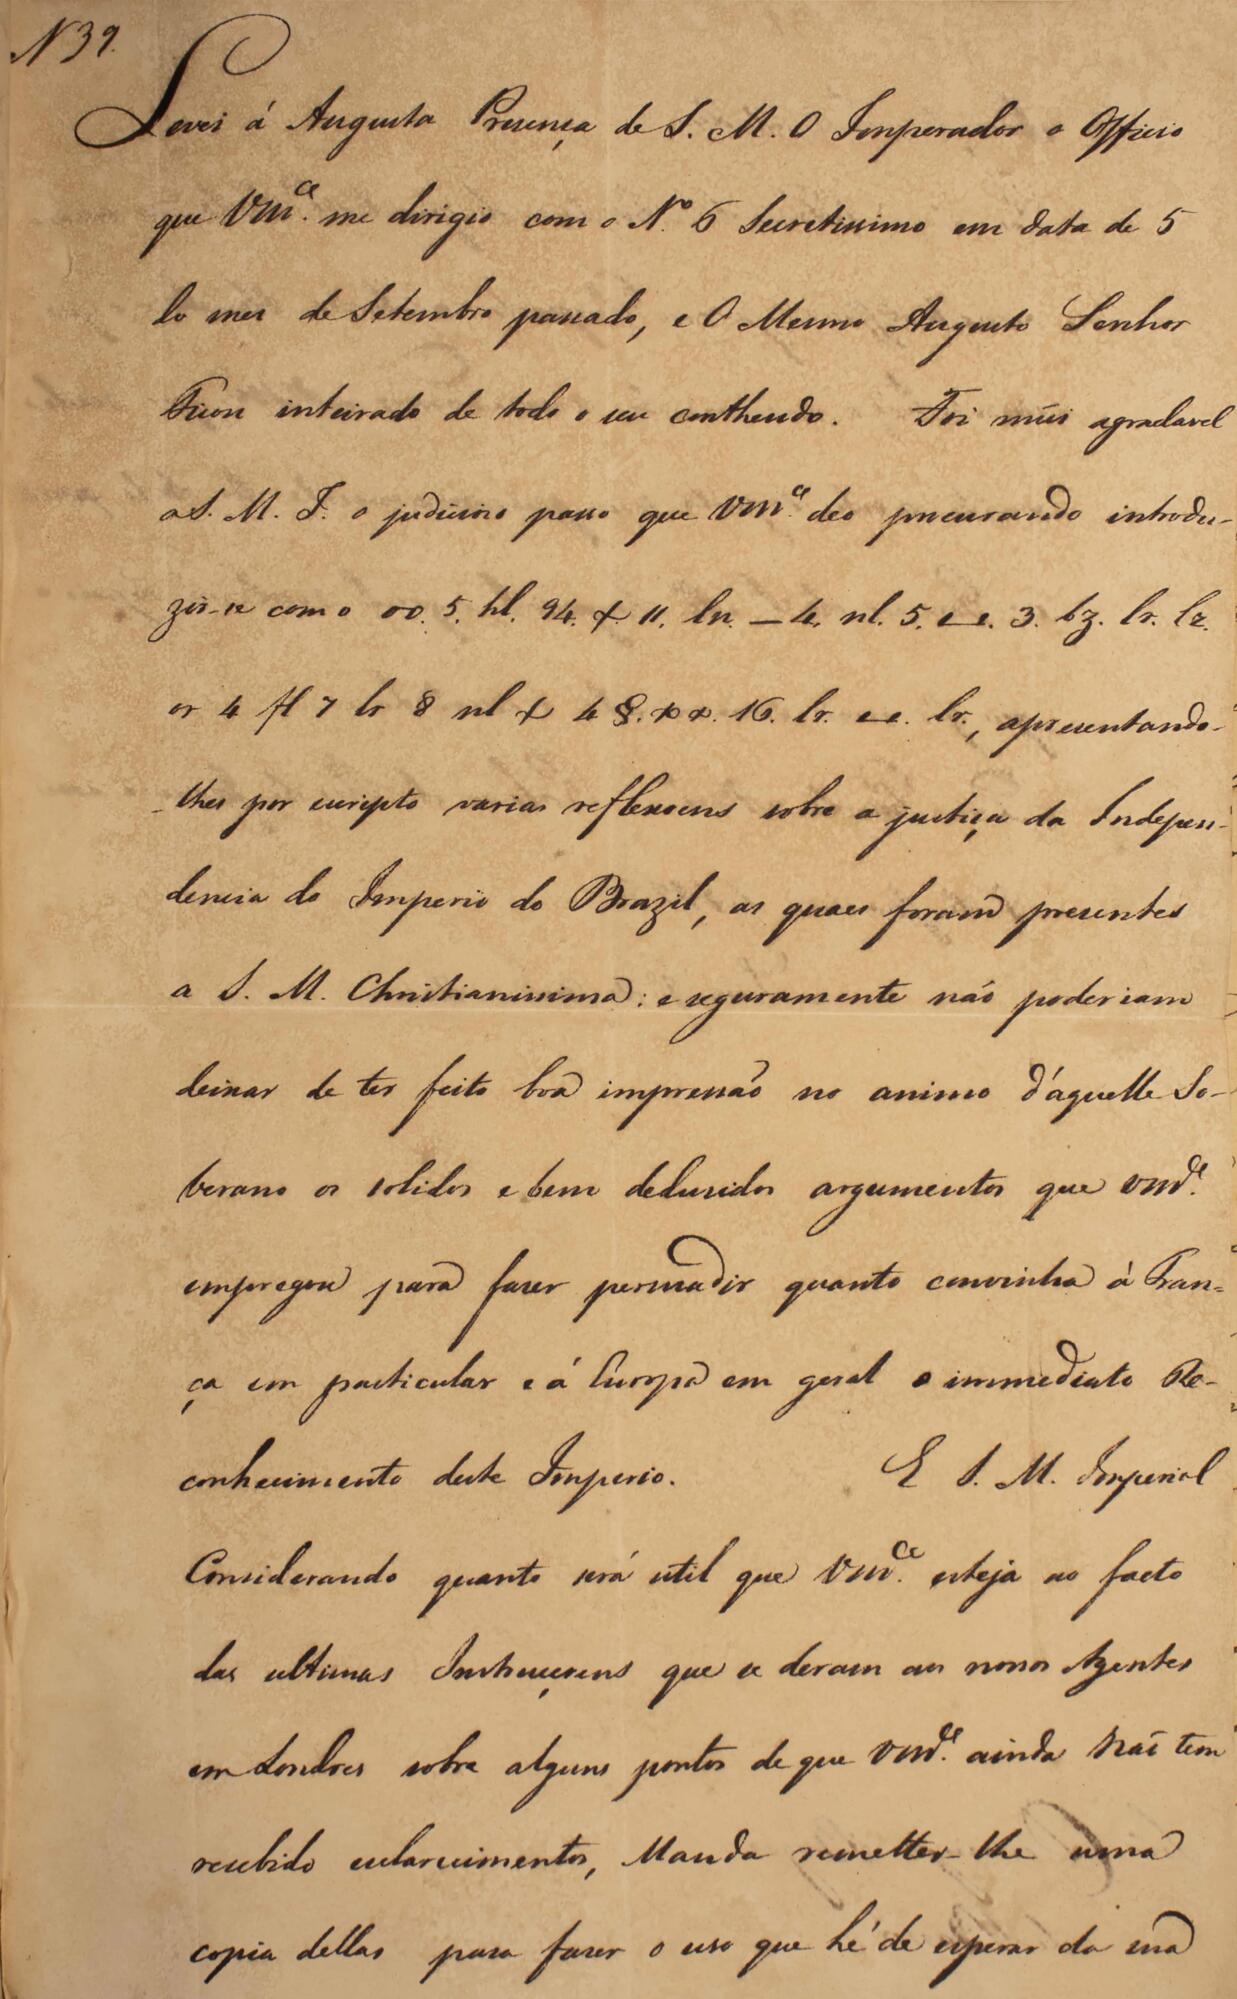 N 39.
Levei á Augusta Presença de S. M. O Imperador o Officio
que Vm.ce me dirigio com o N.o 6 Secretissimo em data de 5
do mez de Setembro passado, e O Mesmo Augusto Senhor
Ficou inteirado de todo o seu contheudo. Foi mui agradavel
a S. M. I. o judicioso passo que Vm.ce deo procurando introdu-
zir-se com o oo. 5. hl. 94. + 11. ln. — 4. nl. 5. e-e. 3. bz. lr. lz.
or 4 fl 7 lr 8 nl + 4 §. xx. 16. lr. e-e. lr., apresentando-
-lhes por escripto varias reflexoens sobre a justiça da Indepen-
dencia do Imperio do Brazil, as quaes foram presentes
a S. M. Christianissima: e seguramente não poderiam
deixar de ter feito boa impressão no animo d'áquelle So-
berano os solidos e bem dedusidos argumentos que Vm.ce
empregou para fazer persuadir quanto convinha á Fran-
ça em particular e á Europa em geral o immediato Re-
conhecimento deste Imperio. E S. M. Imperial
Considerando quanto será util que Vm.ce esteja ao facto
das ultimas Instrucçoens que se deram aos nossos Agentes
em Londres sobre alguns pontos de que Vm.ce ainda não tem
recebido esclarecimentos, Manda remetter-lhe uma
copia dellas para fazer o uso que hé de esperar da sua